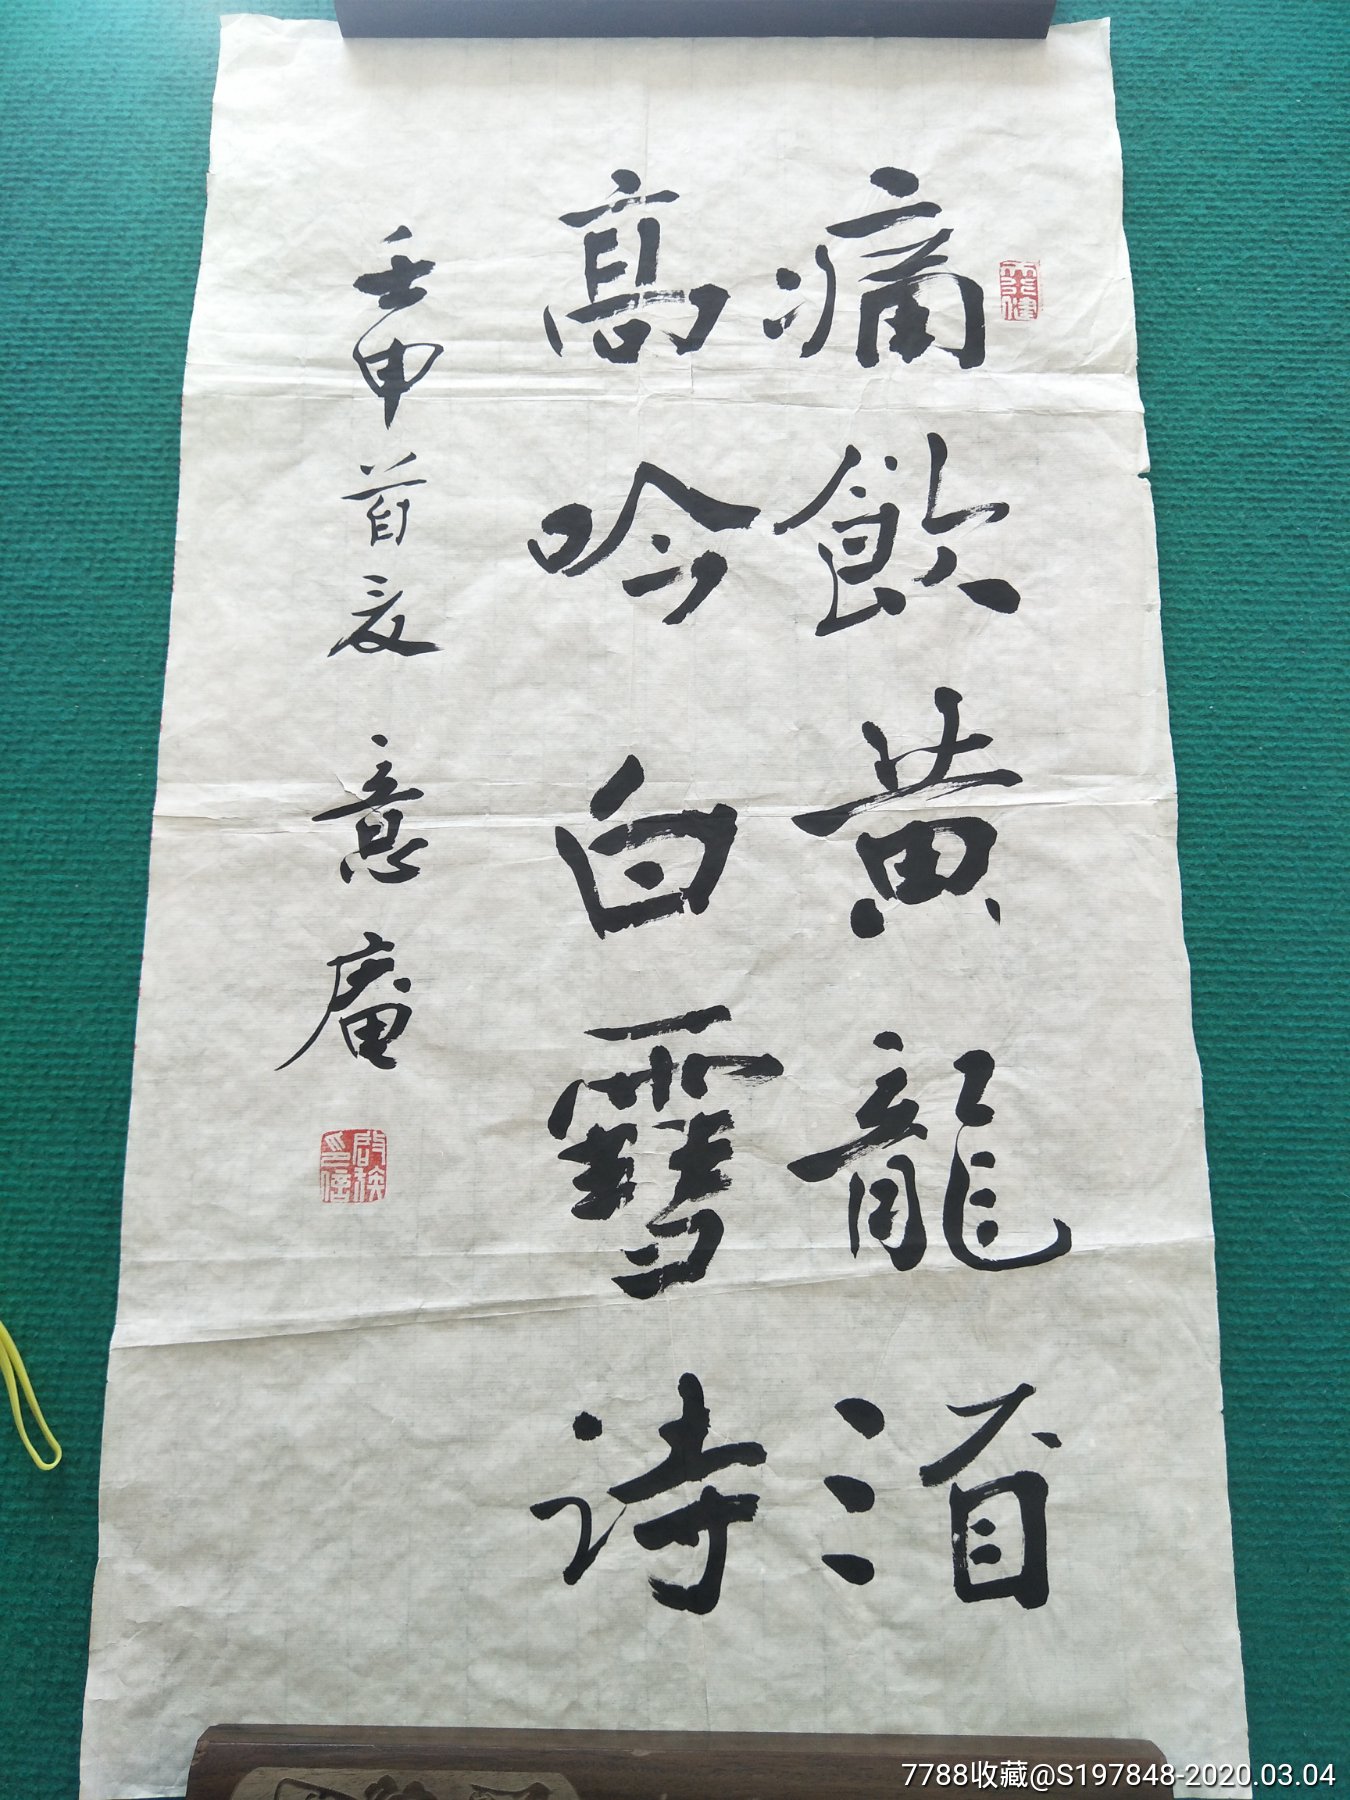 天行健
痛飲黄龍酒
髙吟白雪诗
壬申首夏 意庵
7788收藏@S197848-2020.03.04